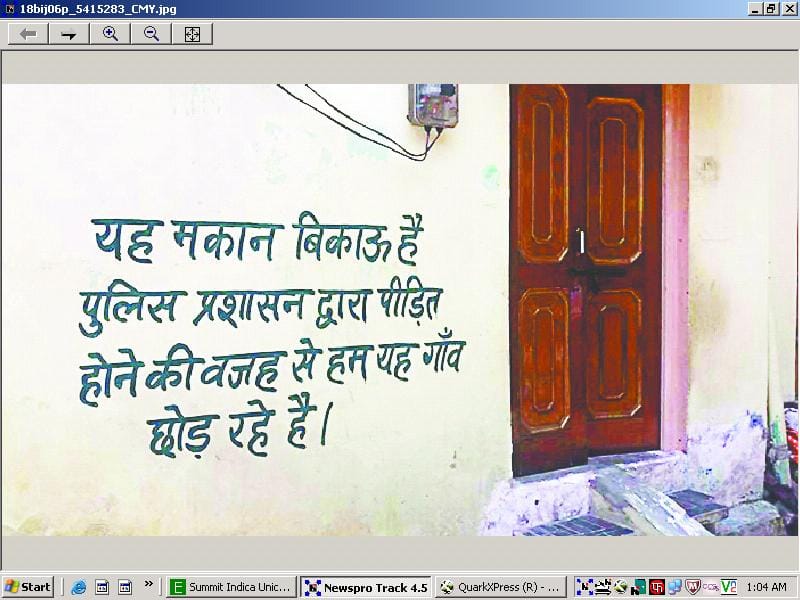 18bij06p_5415283_CMY.jpg
यह मकान बिकाऊ है
पुलिस प्रशासन द्वारा पीड़ित
होने की वजह से हम यह गाँव
छोड़ रहे है।
Start
»
Summit Indica Unic...
Newspro Track 4.5
QuarkXPress (R) - ...
1:04 AM